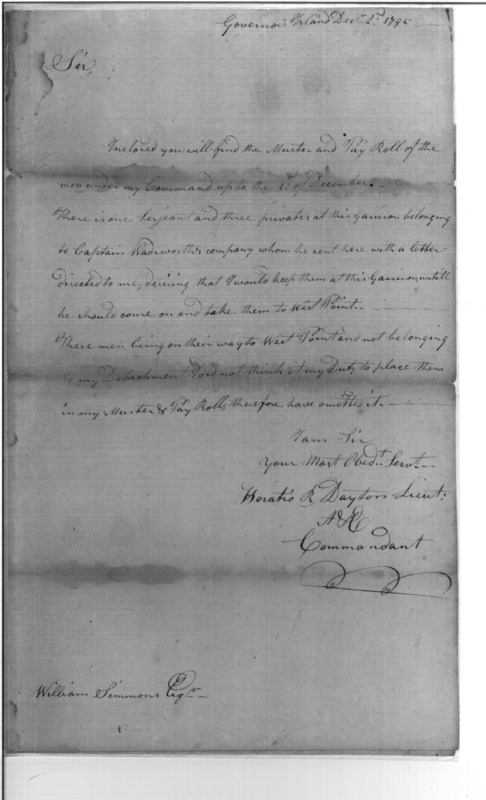 Governors Island Decr. 2d. 1795
Sir,
Inclosed you will find the Muster and Pay Roll of the
men under my Command up to the 1st. of December.
There is one Serjeant and three privates at this garrison belonging
to Captain Wadsworth's company whom he sent here with a letter
directed to me, desiring that I would keep them at this Garrison, untill
he should come on and take them to West Point.
These men being on their way to West Point and not belonging
to my Detachment, I did not think it my Duty to place them
in my Muster & Pay Rolls therefore have omitted it.
I am Sir
Your Most Obedt. Servt.
Horatio R Dayton Lieut:
A&E
Commandant
William Simmons Esqr.